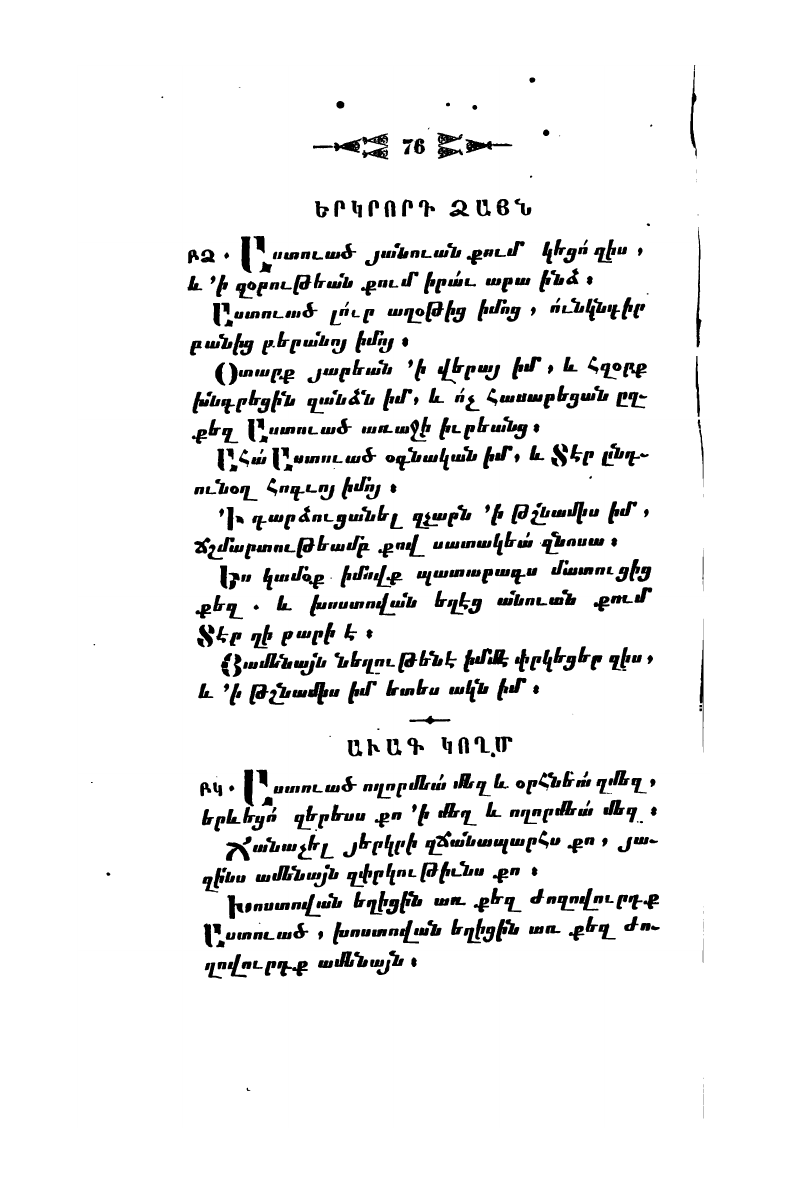 76
ԵՐԿՐՈՐԴ ՁԱՅՆ
ԲՁ. Աստուած յանուան քում կեցո՛ զիս,
և ՚ի զօրութեան քում իրա՛ւ արա ինձ։
Աստուած լո՛ւր աղօթից իմոց, ո՛ւնկնդիր
բանից բերանոյ իմոյ։
Օտարք յարեան ՚ի վերայ իմ, և հզօրք
խնդրեցին զանձն իմ, և ո՛չ համարեցան ըզ-
քեզ Աստուած առաջի իւրեանց։
Ահա Աստուած օգնական իմ, և Տէր ընդ-
ունօղ հոգւոյ իմոյ։
՚Ի դարձուցանել զչարն ՚ի թշնամիս իմ,
ճշմարտութեամբ քով սատակեա՛ զնոսա։
Ես կամօք իմովք պատարագս մատուցից
քեզ. և խոստովան եղէց անուան քում
Տէր զի բարի է։
Յամենայն նեղութենէ իմմէ փրկեցեր զիս,
և ՚ի թշնամիս իմ ետես ակն իմ։
ԱՒԱԳ ԿՈՂՄ
ԲԿ. Աստուած ողորմեա՛ մեզ և օրհնեա՛ զմեզ,
երևեցո՛ զերեսս քո ՚ի մեզ և ողորմեա՛ մեզ։
Ճանաչել յերկրի զճանապարհս քո, յա-
զինս ամենայն զփրկութիւնս քո։
Խոստովան եղիցին առ քեզ ժողովուրդք
Աստուած, խոստովան եղիցին առ քեզ ժո-
ղովուրդք ամենայն։